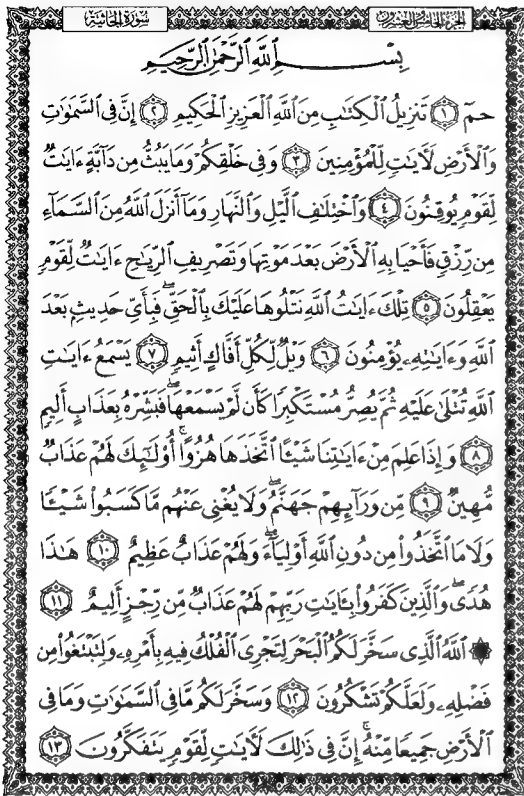 الجزء الخامس والعشرون
سورة الجاثية
بِسْمِ اللَّهِ الرَّحْمَٰنِ الرَّحِيمِ
حمٓ ﴿١﴾ تَنزِيلُ الْكِتَٰبِ مِنَ اللَّهِ الْعَزِيزِ الْحَكِيمِ ﴿٢﴾ إِنَّ فِي السَّمَٰوَٰتِ
وَالْأَرْضِ لَءَايَٰتٍ لِّلْمُؤْمِنِينَ ﴿٣﴾ وَفِي خَلْقِكُمْ وَمَا يَبُثُّ مِن دَابَّةٍ ءَايَٰتٌ
لِّقَوْمٍ يُوقِنُونَ ﴿٤﴾ وَاخْتِلَٰفِ الَّيْلِ وَالنَّهَارِ وَمَا أَنزَلَ اللَّهُ مِنَ السَّمَاءِ
مِن رِّزْقٍ فَأَحْيَا بِهِ الْأَرْضَ بَعْدَ مَوْتِهَا وَتَصْرِيفِ الرِّيَٰحِ ءَايَٰتٌ لِّقَوْمٍ
يَعْقِلُونَ ﴿٥﴾ تِلْكَ ءَايَٰتُ اللَّهِ نَتْلُوهَا عَلَيْكَ بِالْحَقِّ ۖ فَبِأَيِّ حَدِيثٍ بَعْدَ
اللَّهِ وَءَايَٰتِهِۦ يُؤْمِنُونَ ﴿٦﴾ وَيْلٌ لِّكُلِّ أَفَّاكٍ أَثِيمٍ ﴿٧﴾ يَسْمَعُ ءَايَٰتِ
اللَّهِ تُتْلَىٰ عَلَيْهِ ثُمَّ يُصِرُّ مُسْتَكْبِرًا كَأَن لَّمْ يَسْمَعْهَا ۖ فَبَشِّرْهُ بِعَذَابٍ أَلِيمٍ
﴿٨﴾ وَإِذَا عَلِمَ مِنْ ءَايَٰتِنَا شَيْـًٔا اتَّخَذَهَا هُزُوًا ۚ أُوْلَٰٓئِكَ لَهُمْ عَذَابٌ
مُّهِينٌ ﴿٩﴾ مِّن وَرَآئِهِمْ جَهَنَّمُ ۖ وَلَا يُغْنِي عَنْهُم مَّا كَسَبُواْ شَيْـًٔا
وَلَا مَا اتَّخَذُواْ مِن دُونِ اللَّهِ أَوْلِيَآءَ ۖ وَلَهُمْ عَذَابٌ عَظِيمٌ ﴿١٠﴾ هَٰذَا
هُدًى ۖ وَالَّذِينَ كَفَرُواْ بِـَٔايَٰتِ رَبِّهِمْ لَهُمْ عَذَابٌ مِّن رِّجْزٍ أَلِيمٌ ﴿١١﴾
۞ اللَّهُ الَّذِي سَخَّرَ لَكُمُ الْبَحْرَ لِتَجْرِيَ الْفُلْكُ فِيهِ بِأَمْرِهِۦ وَلِتَبْتَغُواْ مِن
فَضْلِهِۦ وَلَعَلَّكُمْ تَشْكُرُونَ ﴿١٢﴾ وَسَخَّرَ لَكُم مَّا فِي السَّمَٰوَٰتِ وَمَا فِي
الْأَرْضِ جَمِيعًا مِّنْهُ ۚ إِنَّ فِي ذَٰلِكَ لَءَايَٰتٍ لِّقَوْمٍ يَتَفَكَّرُونَ ﴿١٣﴾